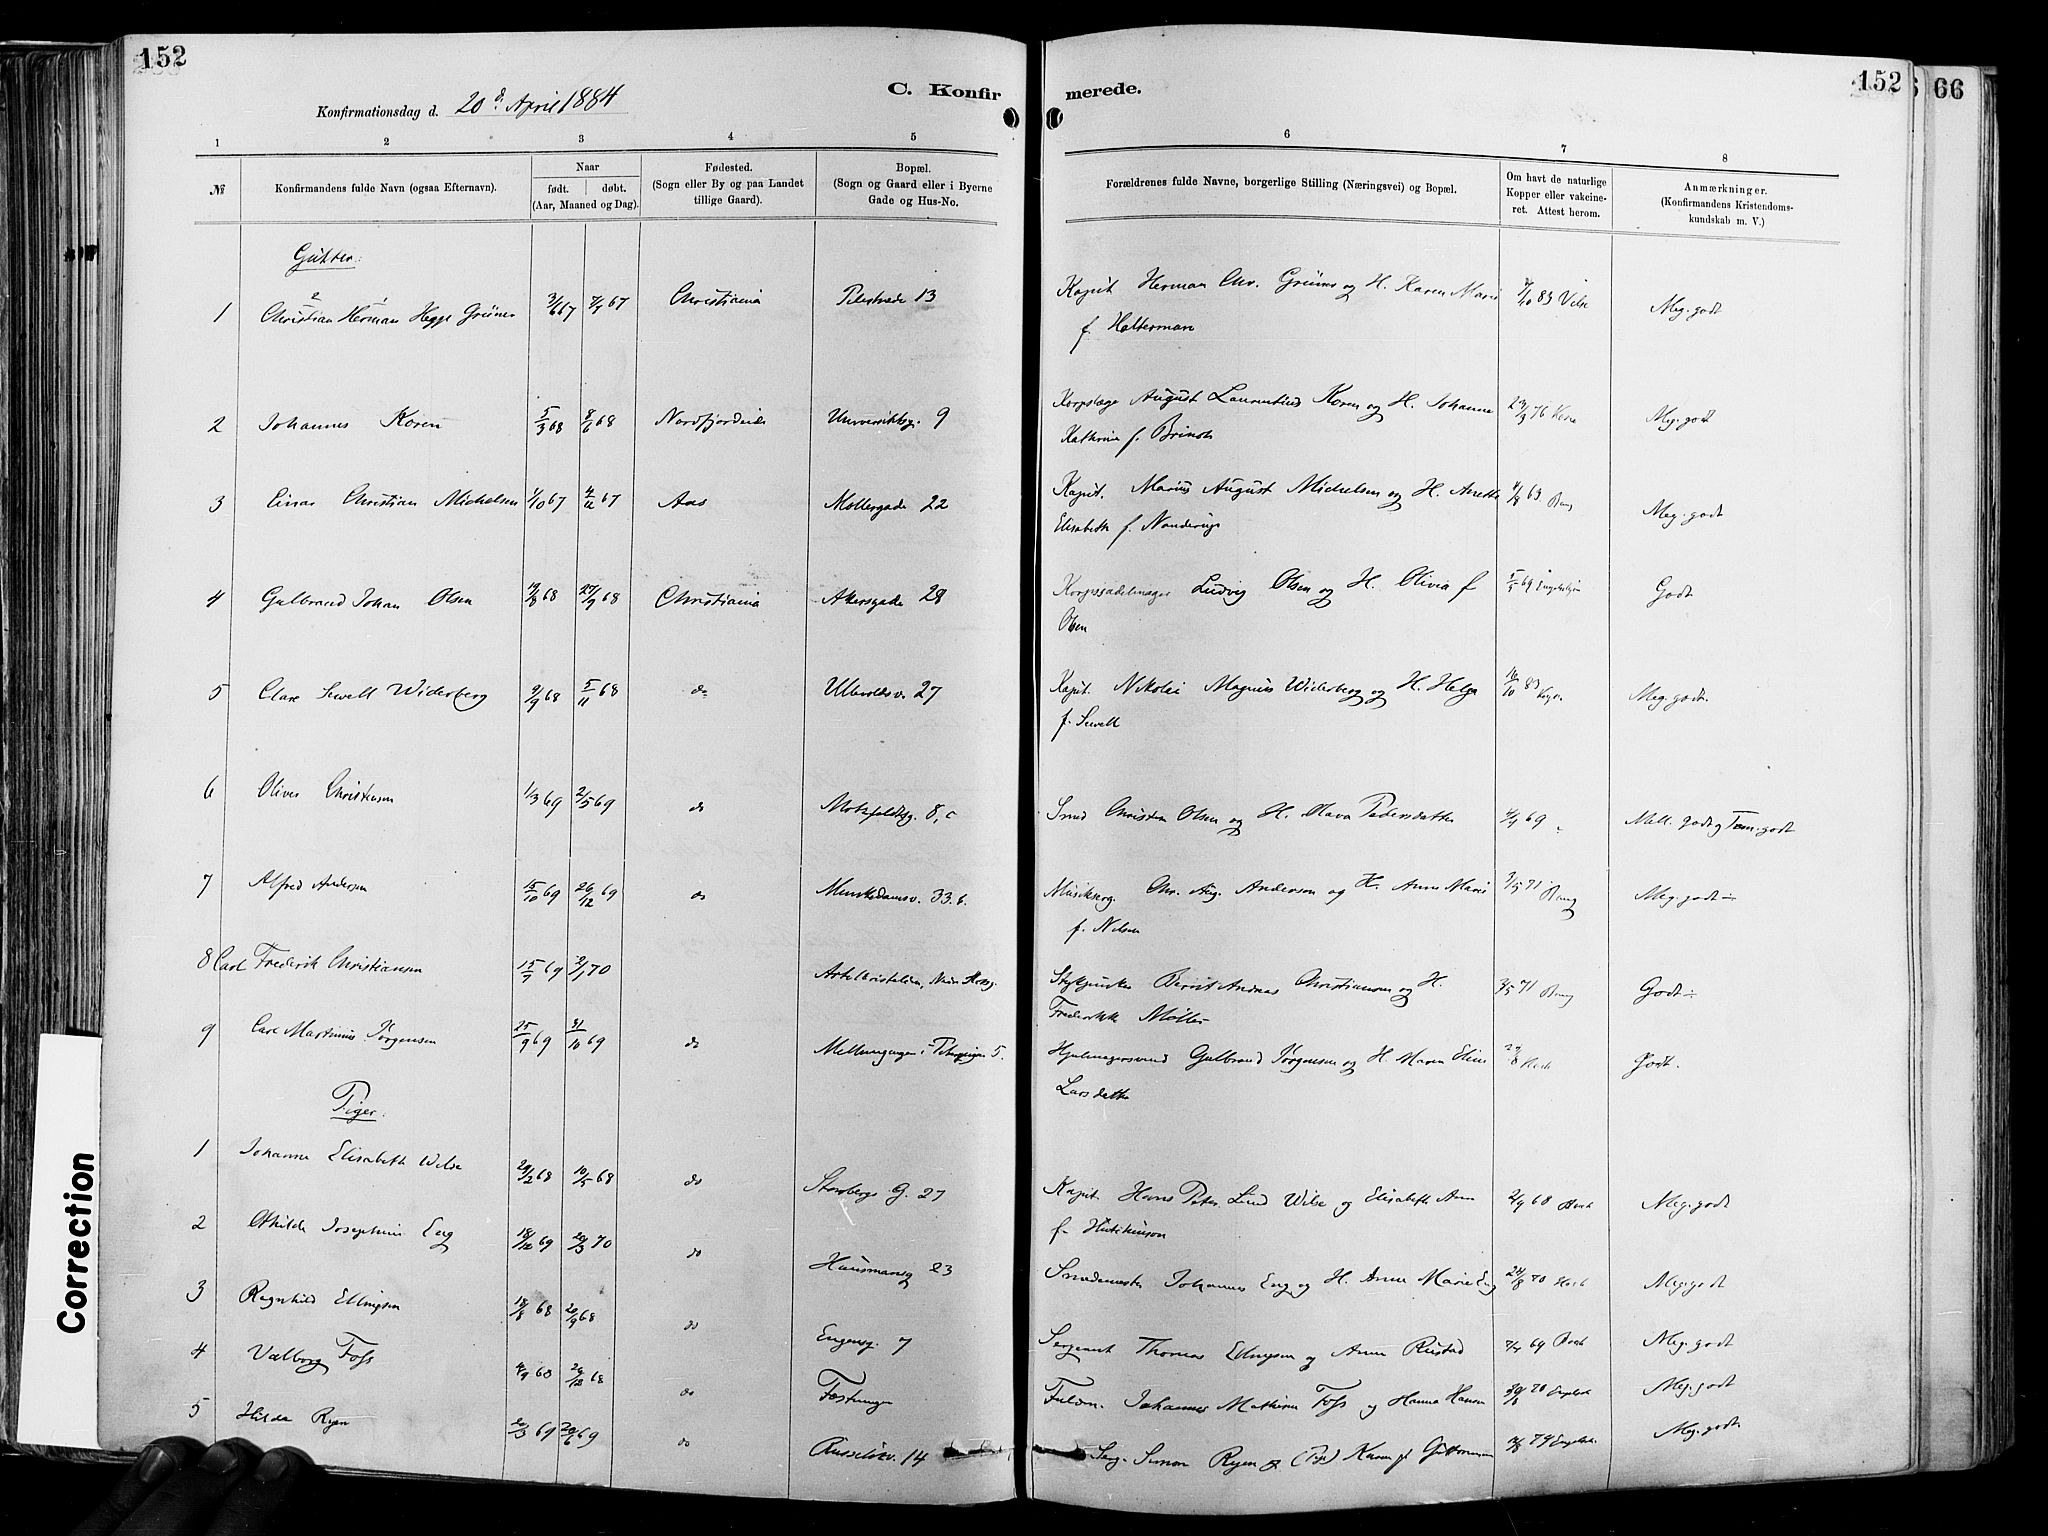 152
152
66
C. Konfirmerede.
Konfirmationsdag d. 20de April 1884
1 2 3 4 5 6 7 8
№
Konfirmandens fulde Navn (ogsaa Efternavn).
Naar
født. døbt.
(Aar, Maaned og Dag).
Fødested.
(Sogn eller By og paa Landet
tillige Gaard).
Bopæl.
(Sogn og Gaard eller i Byerne
Gade og Hus-No.
Forældrenes fulde Navne, borgerlige Stilling (Næringsvei) og Bopæl.
Om havt de naturlige
Kopper eller vakcine-
ret. Attest herom.
Anmærkninger.
(Konfirmandens Kristendoms-
kundskab m. V.)
Gutter:
1 Christian Herman Hegge Grüner 3/6 67 7/9 67 Christiania Pilestræde 13 Kapit. Herman Chr. Grüner og H. Karen Marie 83 Meg. godt
f. Halterman
2 Johannes Koren 5/3 68 8/6 68 Nordfjordeide Universitetsg. 9 Korpslæge August Laurentius Koren og H. Johanne 76 Koren Meg. godt
Kathrine f. Brinch
3 Einar Christian Michelsen 1/10 67 67 Aas Møllergade 22 Kapit. Marius August Michelsen og H. Anette 4/8 63 Bang Meg. godt
Elisabeth f.
4 Gulbrand Johan Olsen 19/8 68 27/9 68 Christiania Akersgade 28 Korpssadelmager Ludvig Olsen og H. Olivia f. 69 Godt
Olsen
5 Clare Sewell Widerberg 2/9 68 5/11 68 do Ullevoldsv. 27 Kapit. Nikolai Magnus Widerberg og H. Helga 16/10 83 Meg. godt.
f. Sewell
6 Oliver Christensen 1/3 69 2/5 69 do Motzfeldtsg. 8, c Smed Christen Olsen og H. Olava Pedersdatter 69 Mell. godt og Tem. godt
7 Alfred Andersen 15/10 69 26/12 69 do Munkedamsv. 33. b. Musikserg. Chr. Aug. Anderson og H. Anne Marie 3/5 71 Bang Meg. godt ÷
f. Nilsen
8 Carl Frederik Christiansen 15/9 69 2/1 70 Stykjunker Berndt Andreas Christiansen og H. 3/5 71 Bang Godt ÷
Frederikke Møller
9 Carl Martinus Jørgensen 25/9 69 31/10 69 do 5. Hjulmagersvend Gulbrand Jørgensen og H. Maren Eline Godt.
Larsdatter
Piger:
1 Johanne Elisabeth Wilse 29/2 68 10/5 68 do Storbergs G. 27 Kapit. Hans Peter Lund Wilse og Elisabeth Ann 2/9 68 Meg. godt
f. Hutchinson
2 Othilde Josephine Eng 18/12 69 20/3 70 do Hausmansg 23 Smedemester Johannes Eng og H. Anne Marie Eng 24/8 70 Meg. godt
3 Ragnhild Ellingsen 18/8 68 20/9 68 do Engensg. 7 Sergeant Thomas Ellingsen og Anne Rustad 69 Meg. godt
4 Valborg Foss 68 do Fæstningen Johannes Mathias Foss og Hanna Hansen 70 Meg. godt
5 Hilda Ryen 20/3 69 20/6 69 do Russeløkv. 14 Serg. Simon Ryen og Karen f. Guttormsen 79 Meg. godt
Correction